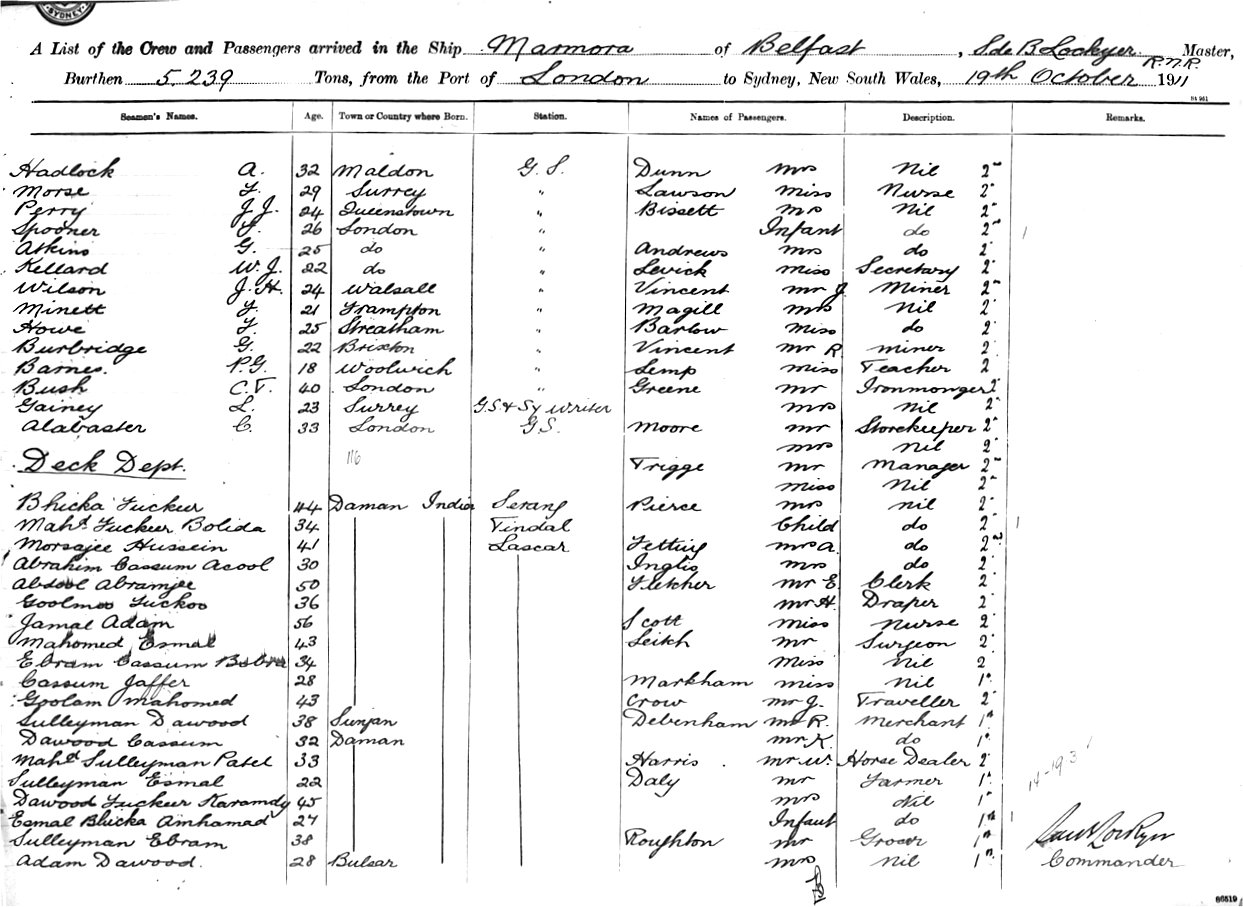 SYDNEY
A List of the Crew and Passengers arrived in the Ship Marmora of Belfast, S de B Lockyer R.N.R. Master,
Burthen 5.239 Tons, from the Port of London to Sydney, New South Wales, 19th October 1911
Seamen's Names. Age. Town or Country where Born. Station. Names of Passengers. Description. Remarks.
Hadlock A. 32 Maldon G.S. Dunn Mrs Nil 2nd
Morse F. 29 Surrey " Lawson Miss Nurse 2"
Perry J.J. 24 Queenstown " Bissett Mrs Nil 2"
Spooner F. 26 London " Infant do 2nd
Atkins G. 25 do " Andrews Mrs do 2"
Kellard W.J. 22 do " Levick Miss Secretary 2"
Wilson J.H. 24 Walsall " Vincent Mr J. Miner 2nd
Minett F. 21 Frampton " Magill Mrs Nil 2"
Howe F. 25 Streatham " Barlow Miss do 2"
Burbridge G. 22 Brixton " Vincent Mr R. miner 2"
Barnes. P.G. 18 Woolwich " Lemp Miss Teacher 2
Bush C.T. 40 London " Greene Mr Ironmonger 2"
Gainey L. 23 Surrey G.S. & Sy Writer Mrs Nil 2"
Alabaster C. 33 London G.S. Moore Mr Storekeeper 2"
116 Mrs Nil 2"
Deck Dept. Trigge Mr Manager 2nd
Miss Nil 2"
Bhicka Fuckeer 44 Daman India Serang Pierce Mrs nil 2"
Mahd. Fuckeer Bolida 34 Tindal Child do 2"
Morsajee Hussein 41 Lascar Fetting Mrs A. do 2nd
Abrahim Cassum Acool 30 Inglis Mrs do 2"
Abdool Abramjee 50 Fletcher Mr E. Clerk 2"
Goolmoo Fuckoo 36 Mr H. Draper 2"
Jamal Adam 56 Scott Miss Nurse 2"
Mahomed Esmal 43 Leitch Mr Surgeon 2"
Ebram Cassum 34 Miss Nil 2
Cassum Jaffer 28 Markham Miss Nil 1st
Goolam Mahomed 43 Crow Mr J. Traveller 2"
Sulleyman Dawood 38 Sunjan Debenham Mr R. Merchant 1st
Dawood Cassum 32 Daman Mr K. do 1st
Mahd. Sulleyman Patel 33 Harris Mr W. Horse Dealer 2"
Sulleyman Esmal 22 Daly Mr Farmer 1st
Dawood Fuckeer Karamdy 45 Mrs Nil 1st
Esmal Bhicka Amhamad 27 Infant do 1st
Sulleyman Ebram 38 Roughton Mr Grocer 1st
Adam Dawood. 28 Bulsar Mrs Nil 1st Commander
86519